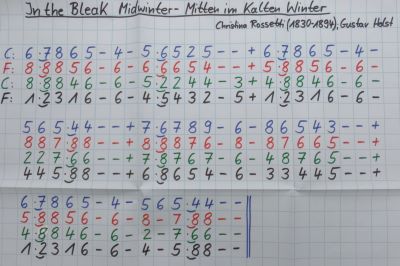 In the Bleak Midwinter - Mitten im Kalten Winter
Christina Rossetti (1830-1894), Gustav Holst
C: 6·7865-4-5·6525--+6·7865-4-
F: 8·8856-6-6·6654--+5·8856-6-
C: 8·8846-6-5·2244-3+4·8846-6-
F: 1·2316-6-4·5432-5+1·2316-6-
565·44--+7·6789-6-86543--+
887·88--+8·8876-8-87665--+
227·66--+7·8767-6-48765--+
445·88--+6·8654-6-33445--+
6·7865-4-565·44--
5·8856-6-8-7·88--
4·8846-6-2-7·66--
1·2316-6-4-5·88--